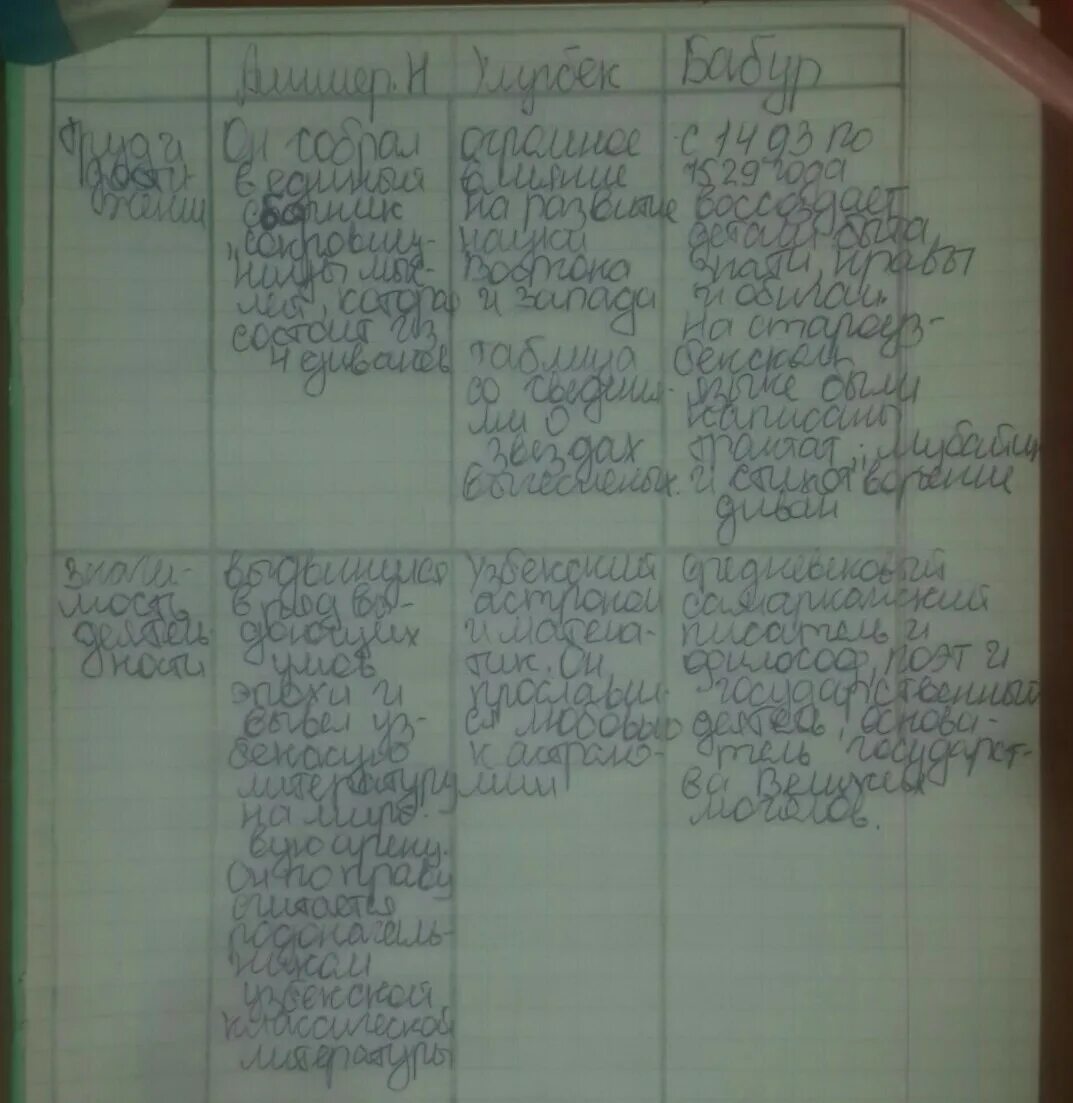 Алишер. Н
Улугбек
Бабур
Труд и
дости-
жении
Он собрал
в единый
сборник
„сокровищ-
ницы мыс-
лей", котора
состоит из
4 диванов
огромное
влияние
на развитие
науки
Востока
и запада
таблица
со сведени-
ми о
звездах
вычесленых.
с 1493 по
1529 года
воссоздает
детали быта,
знати, нравы
и обычаи.
на староуз-
бекском
языке были
написаны
трактат „Мубайин
и стихотворение
диван
значи-
мость
деятель
ности
выдвинулся
в ряд вы-
дающихся
умов
эпохи и
вывел уз-
бекскую
литературу
на миро-
вую арену.
Он по праву
считается
родоначаль-
ником
узбекской
классической
литературы
Узбекский
астроном
и матема-
тик. Он
прославил-
ся любовью
к астроно-
мии
средневековый
самаркандский
писатель и
философ, поэт и
государственный
деятель, основа-
тель государст-
ва Великих
моголов.